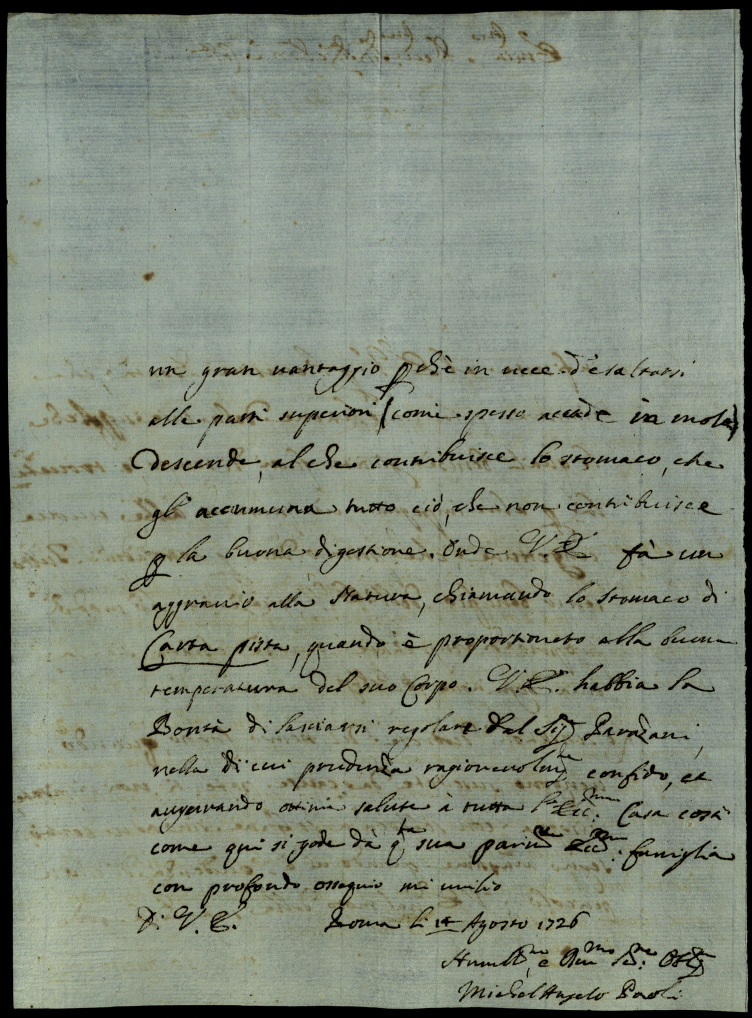 un gran vantaggio p chè in vece d'esaltarsi
alle parti superiori (come spesso accade in molti)
descende, al che contribuisce lo stomaco, che
gl' accumuna tutto ciò, che non contribuisce
p la buona digestione. Onde V. E. fà un
aggravio alla Natura, chiamando lo stomaco di
Carta pista, quando è proportionato alla buona
temperatura del suo Corpo. V. E. habbia la
Bontà di lasciarsi regolare dal Sig.r
nella di cui prudenza confido, et
augurando ottima salute à tutta Ecc.ma Casa costì
come qui si gode dà q.ta sua famiglia
con profondo ossequio mi umilio
Di V. E. Roma li 14 Agosto 1726
Humil.mo, e
Michel Angelo Paoli